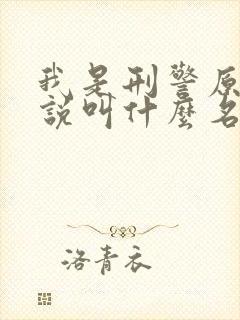 我是刑警原
說叫什麼名
洛青衣